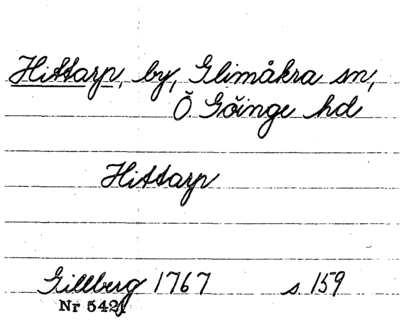 Hittarp, by, Glimåkra sn,
Ö Göinge hd
Hittarp
Gillberg 1767 s. 159
Nr 5421